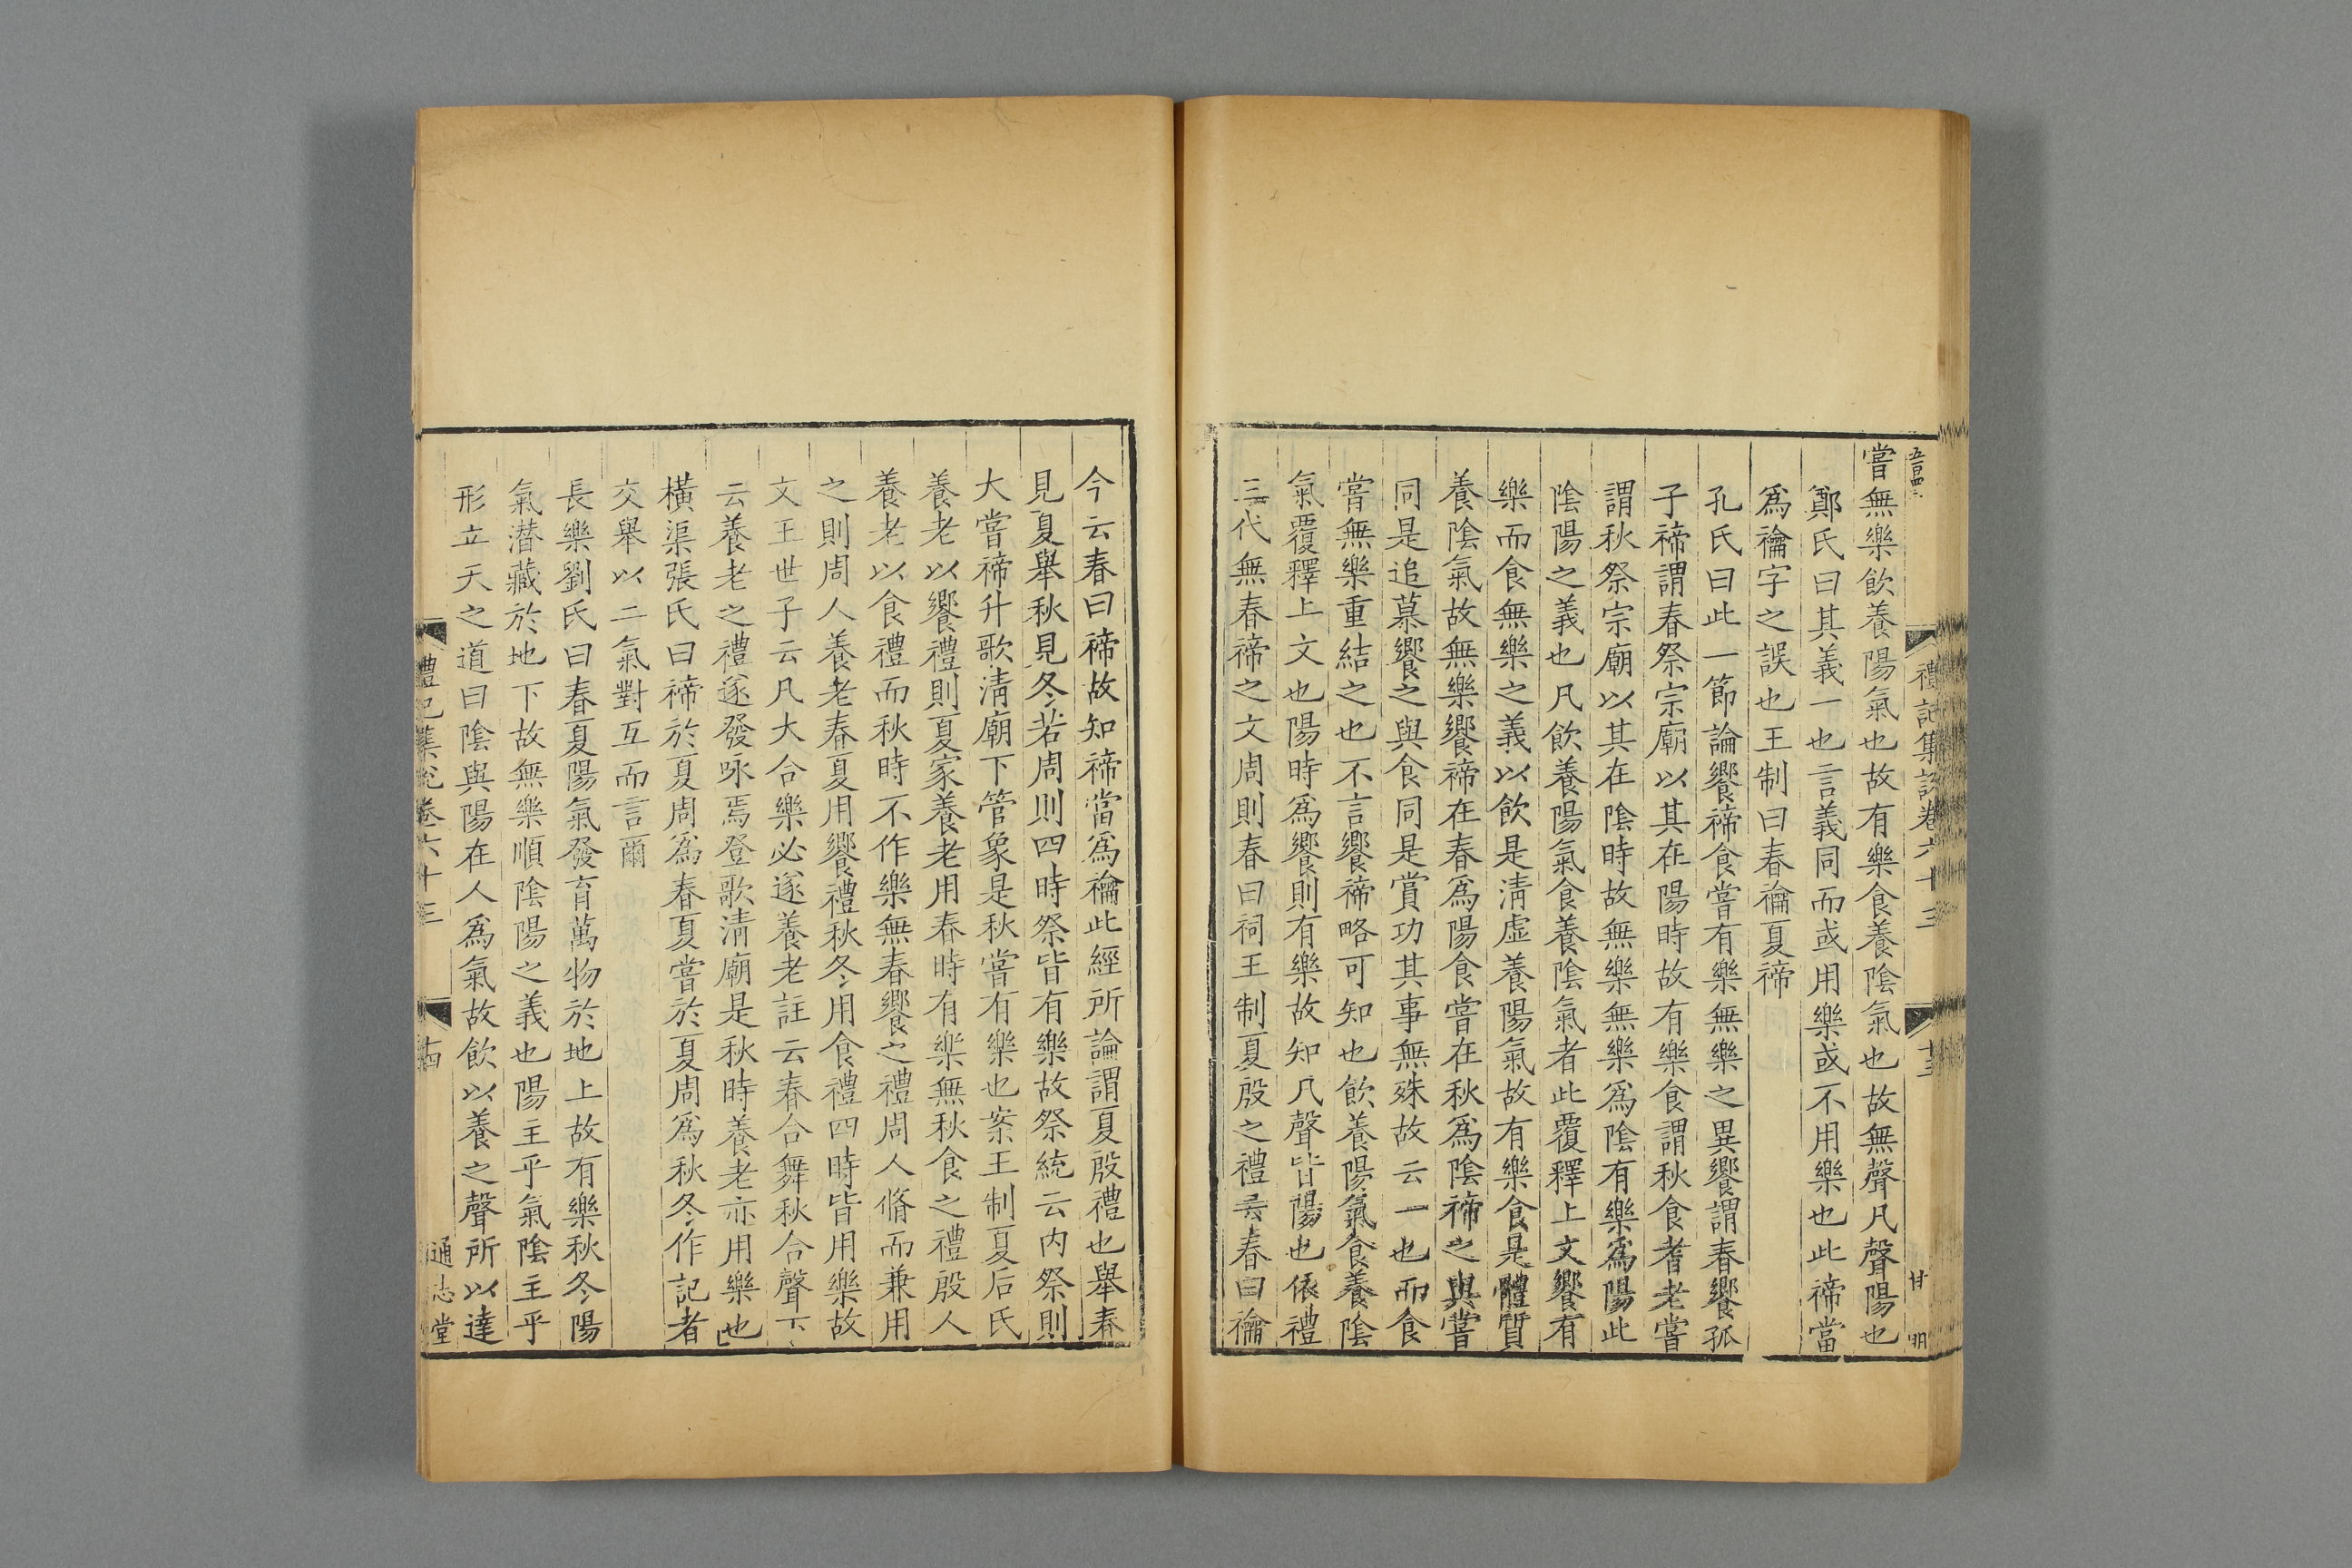 禮記集說卷六十三
十三
甘 明
嘗無樂飲養陽氣也故有樂食養陰氣也故無聲凡聲陽也
鄭氏曰其義一也言義同而或用樂或不用樂也此禘當
爲禴字之誤也王制曰春禴夏禘
孔氏曰此一節論饗禘食嘗有樂無樂之異饗謂春饗孤
子禘謂春祭宗廟以其在陽時故有樂食謂秋食耆老嘗
謂秋祭宗廟以其在陰時故無樂無樂爲陰有樂爲陽此
陰陽之義也凡飲養陽氣食養陰氣者此覆釋上文饗有
樂而食無樂之義以飲是淸虛養陽氣故有樂食是體質
養陰氣故無樂饗禘在春爲陽食嘗在秋爲陰禘之與嘗
同是追慕饗之與食同是賞功其事無殊故云一也而食
嘗無樂重結之也不言饗禘略可知也飲養陽氣食養陰
氣覆釋上文也陽時爲饗則有樂故知凡聲皆陽也依禮
三代無春禘之文周則春曰祠王制夏殷之禮云春曰禴
今云春曰禘故知禘當爲禴此經所論謂夏殷禮也舉春
見夏舉秋見冬若周則四時祭皆有樂故祭統云内祭則
大嘗禘升歌淸廟下管象是秋嘗有樂也案王制夏后氏
養老以饗禮則夏家養老用春時有樂無秋食之禮殷人
養老以食禮而秋時不作樂無春饗之禮周人脩而兼用
之則周人養老春夏用饗禮秋冬用食禮四時皆用樂故
文王世子云凡大合樂必遂養老註云春合舞秋合聲下
云養老之禮遂發咏焉登歌淸廟是秋時養老亦用樂也
橫渠張氏曰禘於夏周爲春夏嘗於夏周爲秋冬作記者
交舉以二氣對互而言爾
長樂劉氏曰春夏陽氣發育萬物於地上故有樂秋冬陽
氣潛藏於地下故無樂順陰陽之義也陽主乎氣陰主乎
形立天之道曰陰與陽在人爲氣故飲以養之聲所以達
禮記集說卷六十三
十四
通志堂